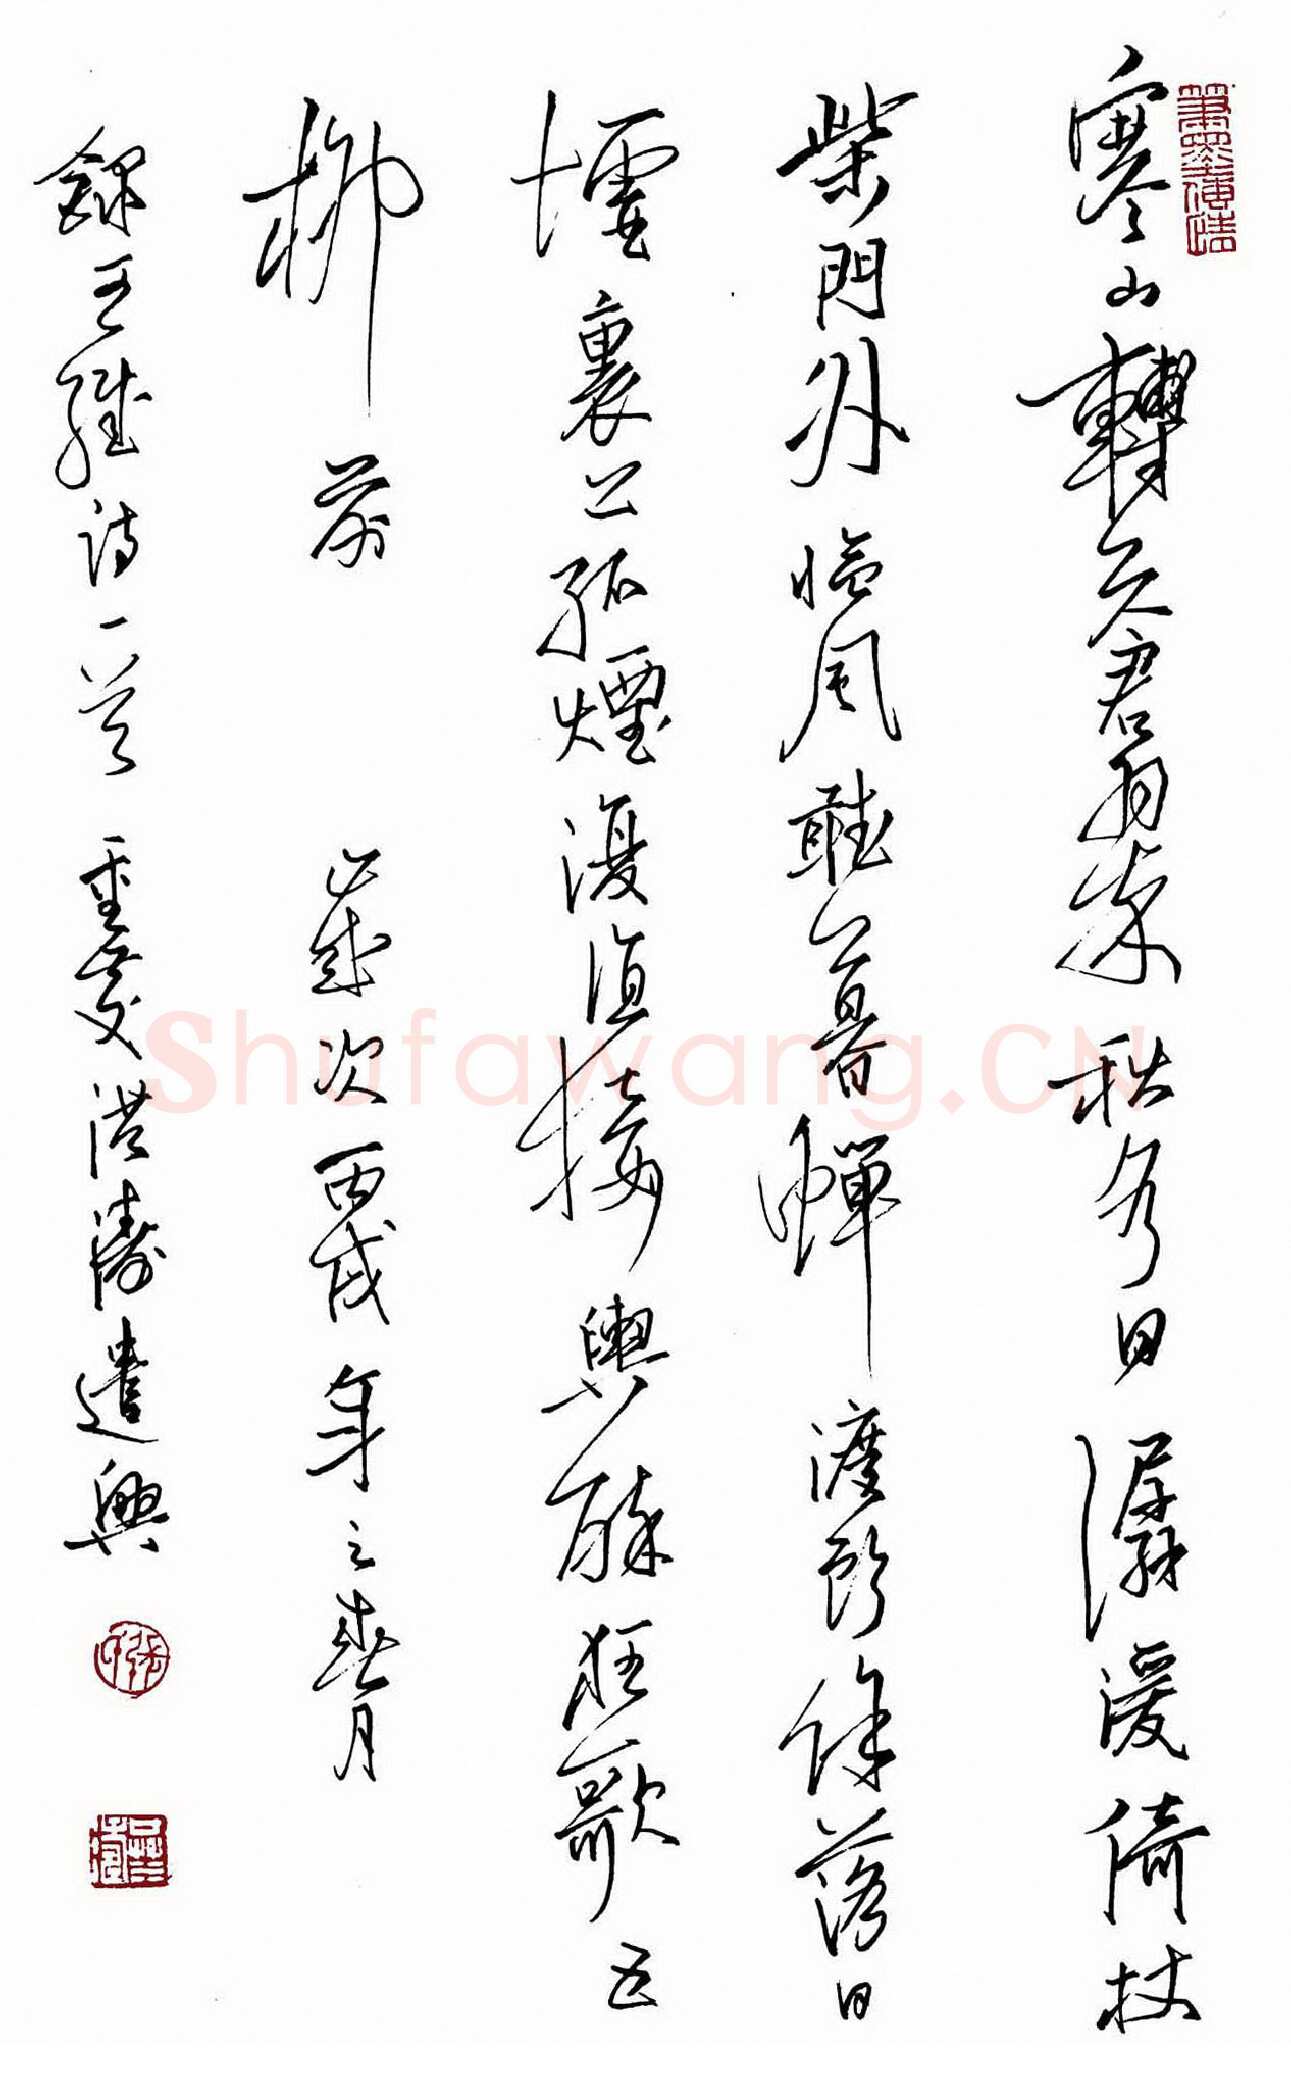 筆墨傳情
寒山轉蒼翠秋水日潺湲倚杖
柴門外臨風聽暮蟬渡頭餘落日
墟裏上孤煙復值接輿醉狂歌五
柳前 歲次丙戌年之春月
錄王維詩一首 重慶洪濤遣興
Shufawang.CN